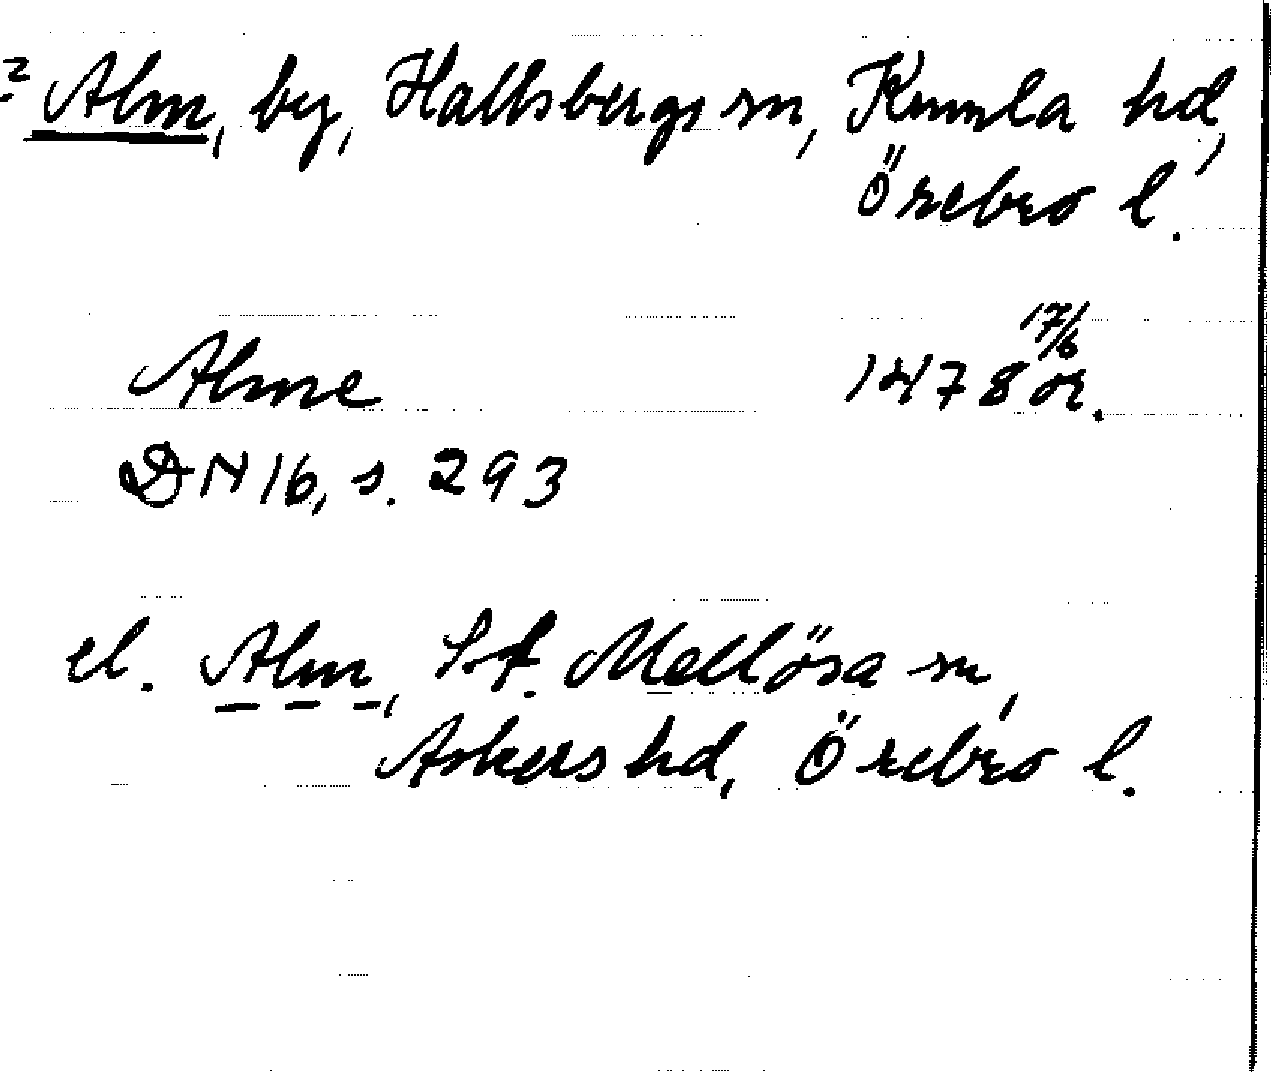 ? Alm, by, Hallsbergs sn, Kumla hd,
Örebro l.
Alme 1478 17/6 or.
DN 16, s. 293
el. Alm, St. Mellösa sn,
Askers hd, Örebro l.